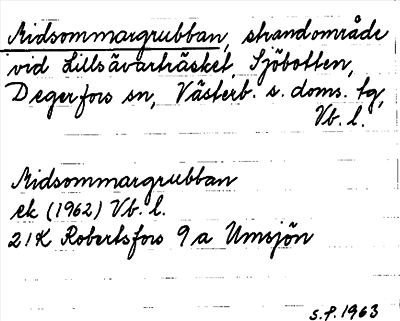 Midsommargrubban, strandområde
vid Lillsävarträsket, Sjöbotten,
Degerfors sn, Västerb. s. doms. tg,
Vb. l.
Midsommargrubban
ek (1962) Vb. l.
21K Robertsfors 9a Umsjön
S.P. 1963